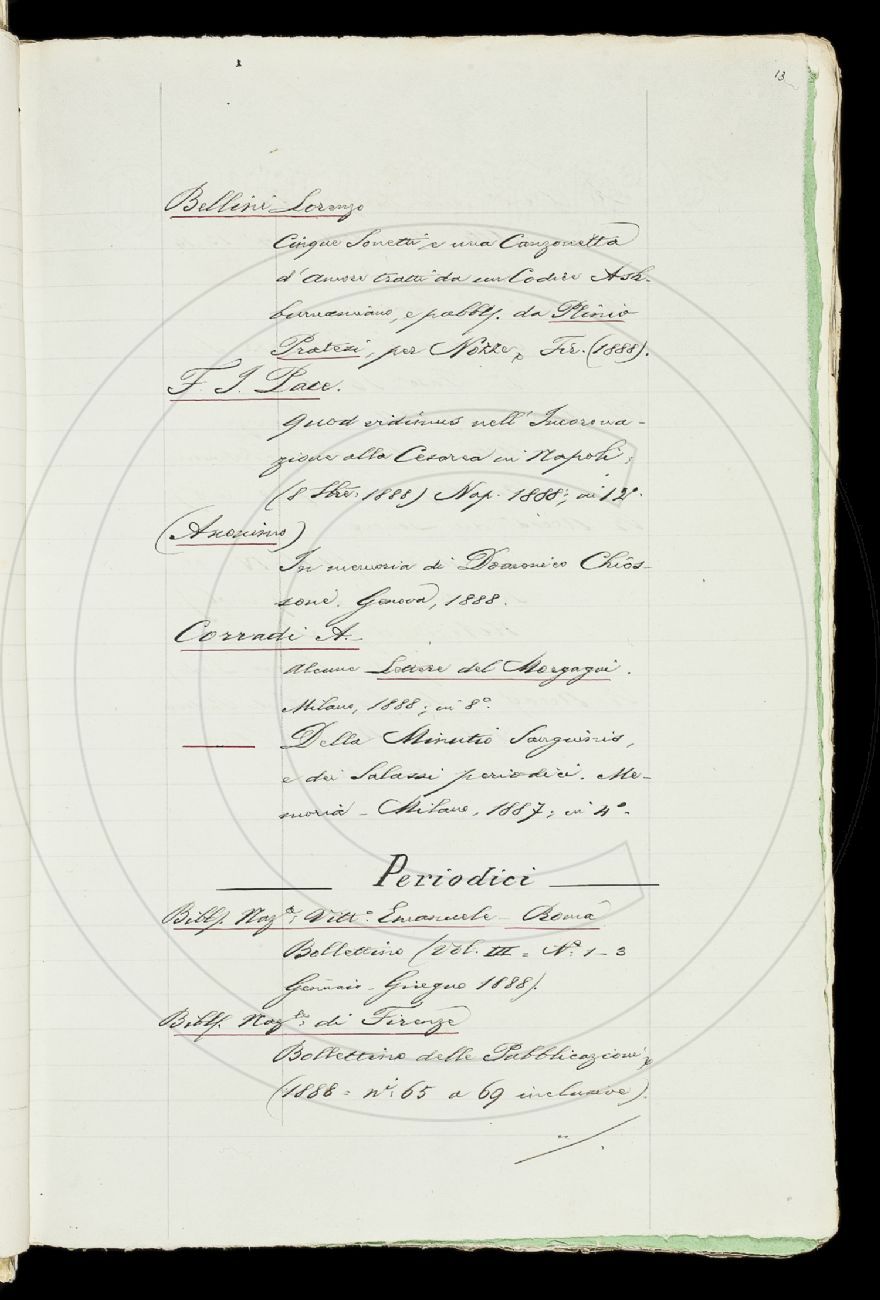 13
Bellini Lorenzo
Cinque Sonetti e una Canzonetta
d'amore tratti da un Codice Ash-
burnamiano, e pubbl. da Plinio
Pratesi, per Nozze, Fir. (1888).
F. J. Pace.
Quod vidimus nell' Incorona-
zione alla Cesarea in Napoli;
(8 Sbre: 1888) Nap. 1888; in 12°.
(Anonimo)
In memoria di Domenico Chios-
sone. Genova, 1888.
Corradi A.
Alcune Lettere del Morgagni.
Milano, 1888; in 8°.
— Della Minutio Sanguinis,
e dei Salassi periodici. Me-
moria - Milano, 1887; in 4°.
Periodici
Bibl. Naz.le: Vitt.o Emanuele - Roma
Bollettino (Vol. III = N.° 1-3
Gennaio - Giugno 1888).
Bibl. Naz.le: di Firenze
Bollettino delle Pubblicazioni
(1888 = n.i: 65 a 69 inclusive).